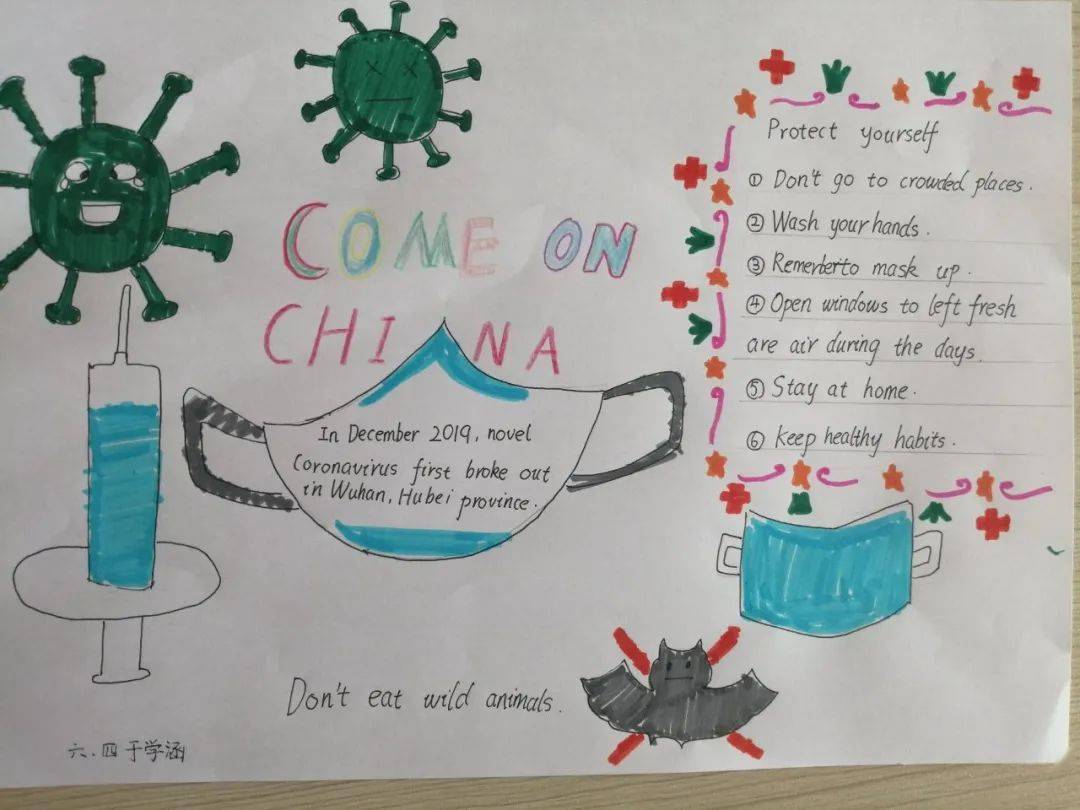 COME ON
CHINA
In December 2019, novel
Coronavirus first broke out
in Wuhan, Hubei province.
Protect yourself
① Don't go to crowded places.
② Wash your hands.
③ Remember to mask up.
④ Open windows to left fresh
are air during the days.
⑤ Stay at home.
⑥ keep healthy habits.
Don't eat wild animals.
六.四 于学涵